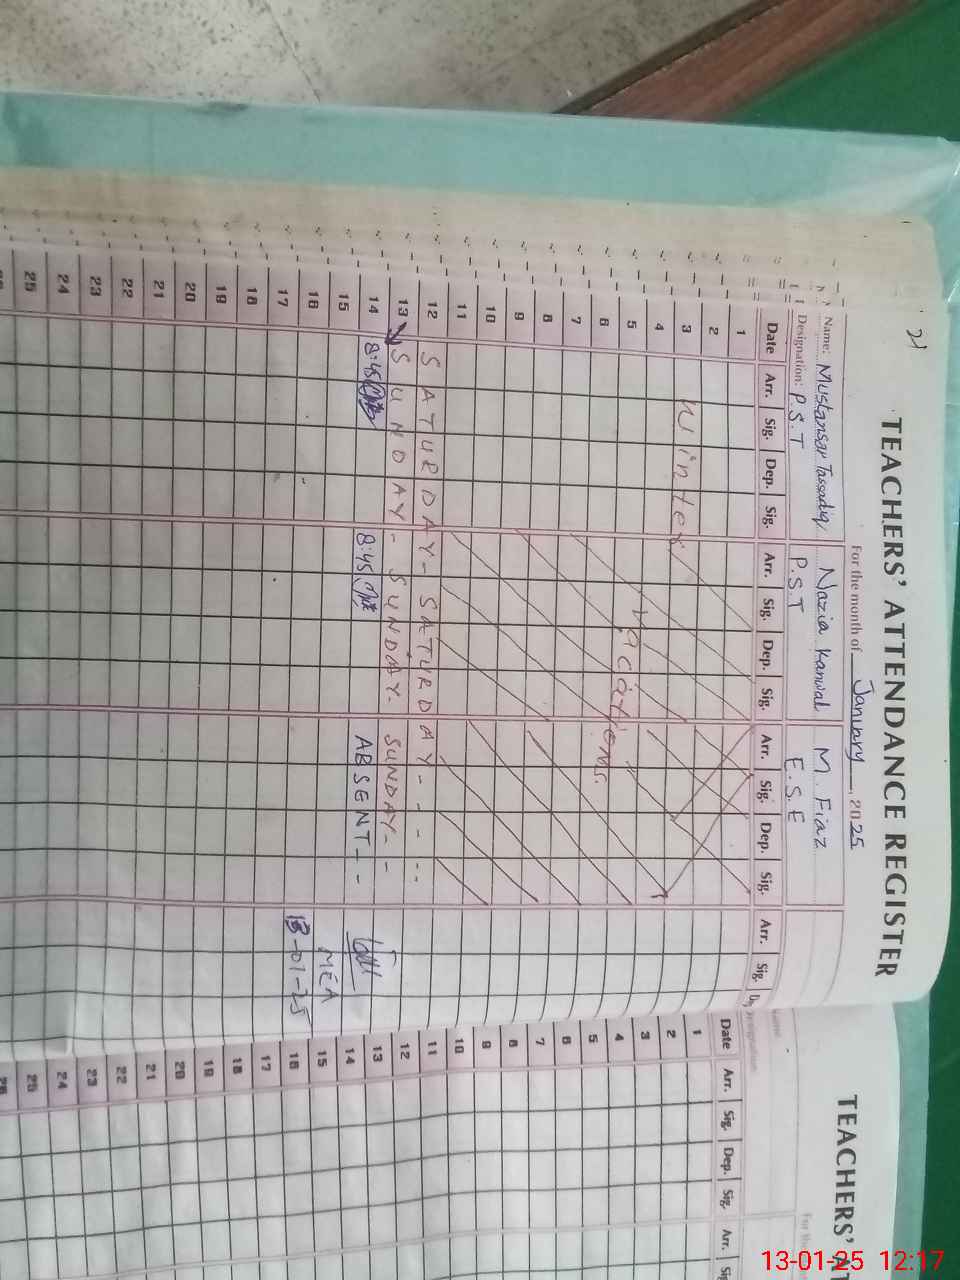 21
TEACHERS' ATTENDANCE REGISTER
For the month of January, 2025
Name: Mustansar Tassadiq Nazia Kanwal M. Fiaz
Designation: P.S.T P.S.T E.S.E
Date Arr. Sig. Dep. Sig. Arr. Sig. Dep. Sig. Arr. Sig. Dep. Sig. Arr. Sig.
1
2
3 Winter
4
5 Vacations.
6
7
8
9
10
11
12 SATURDAY - SATURDAY - - -
13 SUNDAY - SUNDAY. SUNDAY - -
14 8:45 8:45 ABSENT - -
15 MEA
16 13-01-25
17
18
19
20
21
22
23
24
25
TEACHERS' AT
For the
Name
Designation
Date Arr. Sig. Dep. Sig. Arr. Sig
1
2
3
4
5
6
7
8
9
10
11
12
13
14
15
16
17
18
19
20
21
22
23
24
25
26
13-01-25 12:17